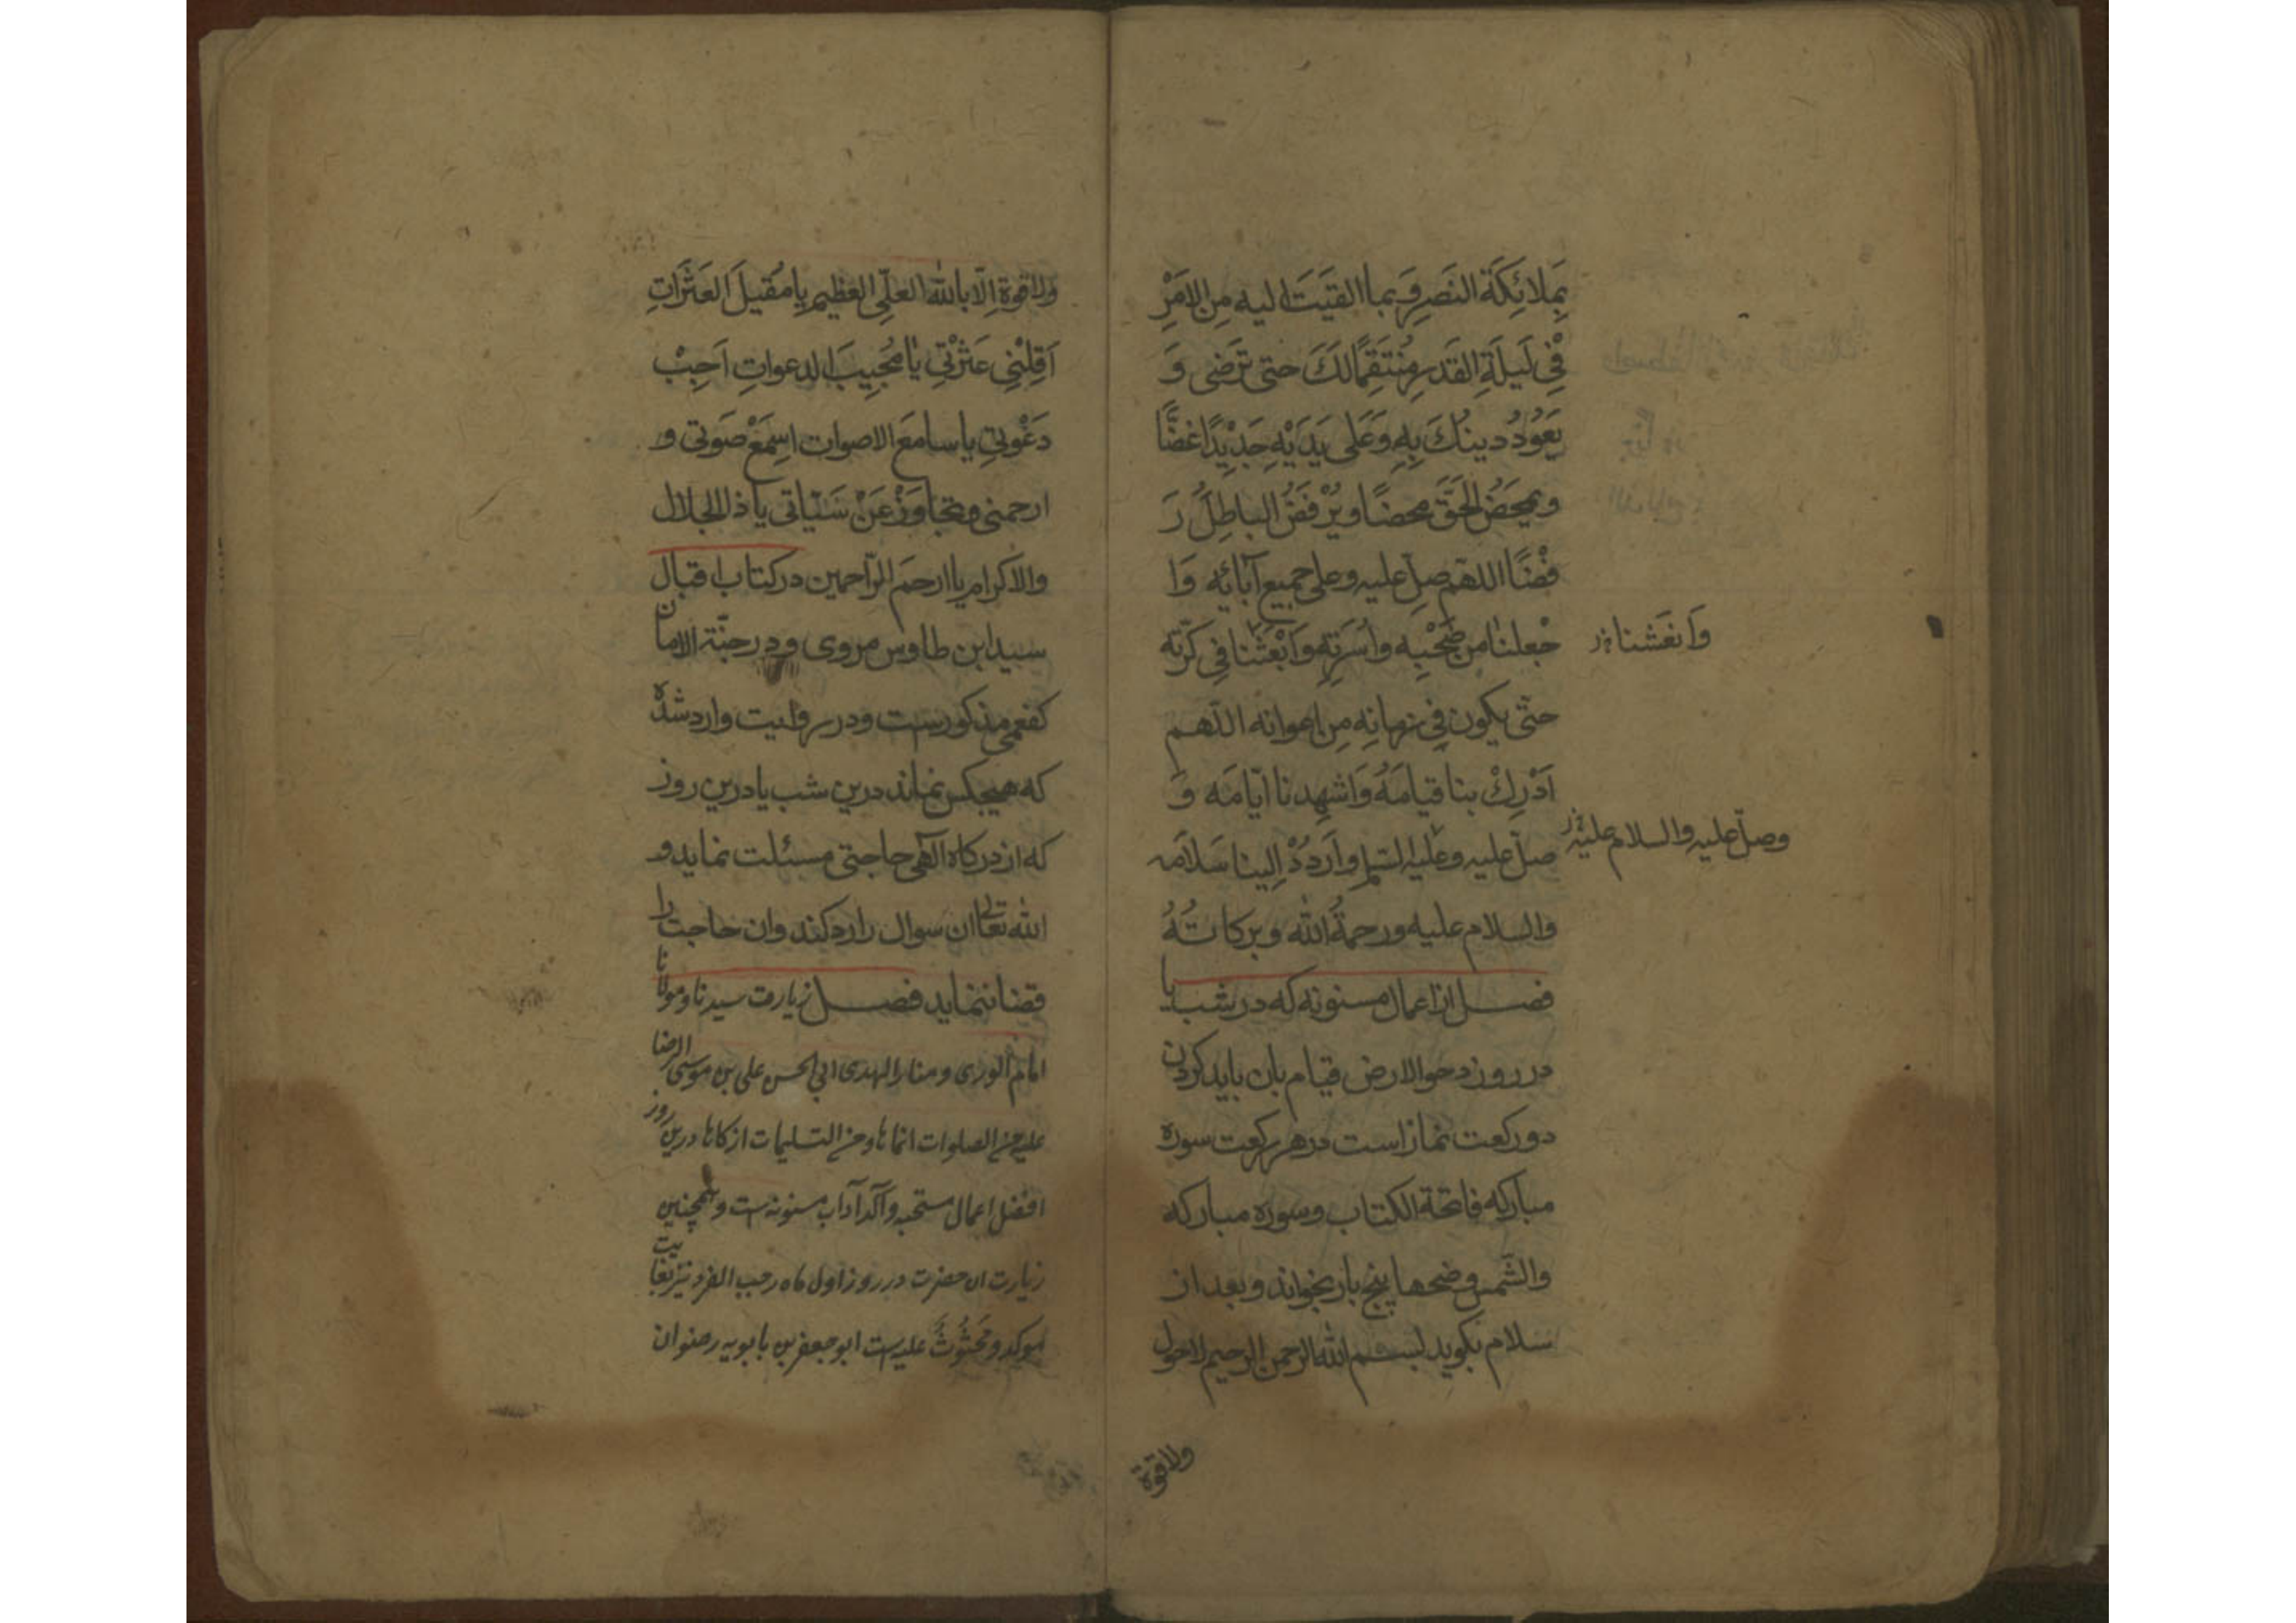 بِمَلائِكَةِ النَصرِ وَ بما القَیتَ الیه مِن الامَرِ
فِی لَیلَةِ القَدرِ مُنتَقِمًا لَكَ حتی تَرضی وَ
یَعُودُ دینُكَ بِهِ وَ عَلی یَدَیْهِ جَدِیْدًا غَضًّا
و یمحَضُ الحَقَّ محضًا و یُرْفَضُ الباطِلُ رَ
فْضًا اللهّم صلّ علیه و علی جمیع آبائِه وَا
جْعلنا من صَحْبِه و اُسَرَتِهِ وَابْعَثْنا فی کَرَّتِه
وَانعَشنا خ‌ر
حتّی یکون فِی زمانِه مِن اعوانه اللّهم
اَدْرِكْ بنا قیامَهُ وَاَشهِدنا اَیّامَه وَ
صلّ علیه و علیه السّلم وارْدُدْ اِلینا سَلامَه
وصلّ علیه والسلام علیه خ‌ر
والسلام علیه ورحمةُ الله وبرکاتُهُ
فصل از اعمال مسنونه که در شب یا
در روز دحو الارض قیام بان باید کردن
دو رکعت نماز است در هر رکعت سوره
مبارکه فاتحة الکتاب و سوره مبارکه
والشّمس وضحها پنج بار بخواند و بعد از
سلام بکوید بسم الله الرحمن الرحیم لاحول
ولاقوة
ولاقوة اِلّا بالله العلّی العظیم یا مُقیلَ العَثَراتِ
اَقِلْنِی عَثْرَتِی یا مُجِیبَ الدعواتِ اَجِبْ
دَعْوتِی یا سامعَ الاصوات اسْمَعْ صَوتی و
ارحمنی و تجاوَزْ عَنْ سَیّئاتی یا ذا الجلال
والاکرام یا ارحَم الرّاحمین در کتاب اقبال
سید ابن طاوس مروی و در جنّة الامان
کفعمی مذکورست و در روایت وارد شده
که هیچکس نماند درین شب یا درین روز
که از درکاه آلهی حاجتی مسئلت نماید و
الله تعالی ان سوال را رد کند وان حاجت را
قضا ننماید فصل زیارت سیدنا و مولانا
امام الوری و منار الهدی ابی الحسن علی بن موسی الرضا
علیه من الصلوات انماها و من التسلیمات ازکاها درین روز
افضل اعمال مستحبه و آکد آداب مسنونه ست و همچنین
زیارت ان حضرت در روز اول ماه رجب الفرد نیز بغایت
موکد و محَثُوثٌ علیه ست ابو جعفر بن بابویه رضوان